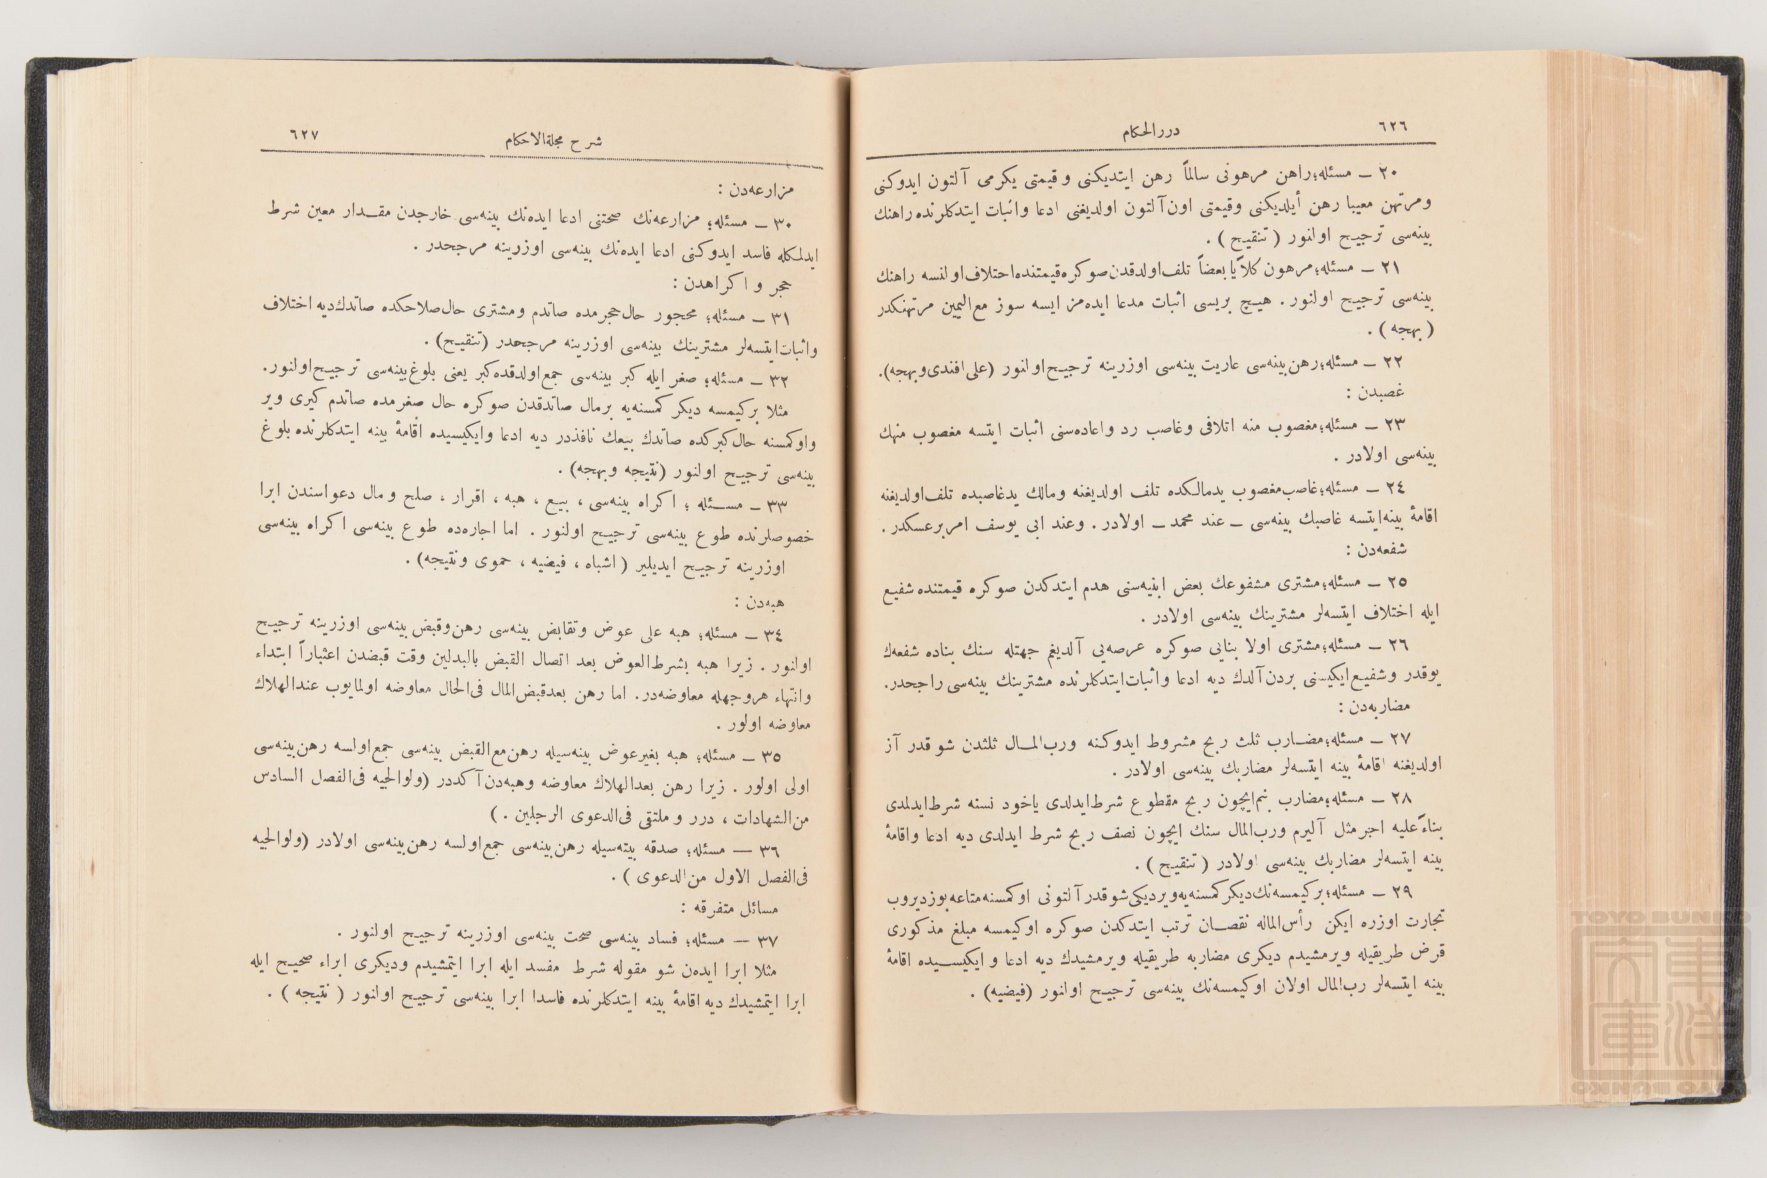 ٦٢٦
دررالحكام
٢٠ — مسئله؛ راهن مرهونى سالماً رهن ايتديكنى وقيمتى يكرمى آلتون ايدوكنى
ومرتهن معيبا رهن أيلديكنى وقيمتى اون‌آلتون اولديغنى ادعا واثبات ايتدكلرنده راهنك
بينه‌سى ترجيح اولنور ( تنقيح ) .
٢١ — مسئله؛ مرهون كلاً يا بعضاً تلف اولدقدن صوكره قيمتنده اختلاف اولنسه راهنك
بينه‌سى ترجيح اولنور . هيچ بريسى اثبات مدعا ايده‌مز ايسه سوز مع‌اليمين مرتهنكدر
( بهجه ) .
٢٢ — مسئله؛ رهن بينه‌سى عاريت بينه‌سى اوزرينه ترجيح اولنور (على افندى وبهجه).
غصبدن :
٢٣ — مسئله؛ مغصوب منه اتلافى وغاصب رد واعاده‌سنى اثبات ايتسه مغصوب منهك
بينه‌سى اولادر .
٢٤ — مسئله؛ غاصب مغصوب يدمالكده تلف اولديغنه ومالك يدغاصبده تلف‌اولديغنه
اقامهٔ بينه ايتسه غاصبك بينه‌سى — عند محمد — اولادر . وعند ابى يوسف امر برعسكدر .
شفعه‌دن :
٢٥ — مسئله؛ مشترى مشفوعك بعض ابنيه‌سنى هدم ايتدكدن صوكره قيمتنده شفيع
ايله اختلاف ايتسه‌لر مشترينك بينه‌سى اولادر .
٢٦ — مسئله؛ مشترى اولا بنايى صوكره عرصه‌يى آلديغم جهتله سنك بناده شفعه‌ك
يوقدر وشفيع ايكيسنى بردن آلدك ديه ادعا واثبات ايتدكلرنده مشترينك بينه‌سى راجحدر.
مضاربه‌دن :
٢٧ — مسئله؛ مضارب ثلث ربح مشروط ايدوكنه ورب‌المال ثلثدن شو قدر آز
اولديغنه اقامهٔ بينه ايتسه‌لر مضاربك بينه‌سى اولادر .
٢٨ — مسئله؛ مضارب بنم ايچون ربح مقطوع شرط ايدلدى ياخود نسنه شرط ايدلمدى
بناءً عليه اجر مثل آليرم ورب‌المال سنك ايچون نصف ربح شرط ايدلدى ديه ادعا واقامهٔ
بينه ايتسه‌لر مضاربك بينه‌سى اولادر ( تنقيح ) .
٢٩ — مسئله؛ بركيمسه‌نك ديكر كمسنه‌يه ويرديكى شوقدر آلتونى اوكمسنه متاعه بوزديروب
تجارت اوزره ايكن رأس‌الماله نقصان ترتب ايتدكدن صوكره اوكيمسه مبلغ مذكورى
قرض طريقيله ويرمشيدم ديكرى مضاربه طريقيله ويرمشيدك ديه ادعا وايكيسيده اقامهٔ
بينه ايتسه‌لر رب‌المال اولان اوكيمسه‌نك بينه‌سى ترجيح اولنور (فيضيه) .
٦٢٧
شرح مجلةالاحكام
مزارعه‌دن :
٣٠ — مسئله؛ مزارعه‌نك صحتنى ادعا ايده‌نك بينه‌سى خارجدن مقدار معين شرط
ايدلمكله فاسد ايدوكنى ادعا ايده‌نك بينه‌سى اوزرينه مرجحدر .
حجر و اكراهدن :
٣١ — مسئله؛ محجور حال حجرمده صاتدم ومشترى حال صلاحكده صاتدك ديه اختلاف
واثبات ايتسه‌لر مشترينك بينه‌سى اوزرينه مرجحدر (تنقيح) .
٣٢ — مسئله؛ صغر ايله كبر بينه‌سى جمع اولدقده كبر يعنى بلوغ بينه‌سى ترجيح اولنور.
مثلا بركيمسه ديكر كمسنه‌يه برمال صاتدقدن صوكره حال صغرمده صاتدم كيرى وير
واوكمسنه حال كبركده صاتدك بيعك نافذدر ديه ادعا وايكيسيده اقامهٔ بينه ايتدكلرنده بلوغ
بينه‌سى ترجيح اولنور (نتيجه وبهجه) .
٣٣ — مسئله ؛ اكراه بينه‌سى ، بيع ، هبه ، اقرار ، صلح و مال دعواسندن ابرا
خصوصلرنده طوع بينه‌سى ترجيح اولنور . اما اجاره‌ده طوع بينه‌سى اكراه بينه‌سى
اوزرينه ترجيح ايديلير ( اشباه ، فيضيه ، حموى ونتيجه) .
هبه‌دن :
٣٤ — مسئله؛ هبه على عوض وتقابض بينه‌سى رهن وقبض بينه‌سى اوزرينه ترجيح
اولنور . زيرا هبه بشرط العوض بعد اتصال القبض بالبدلين وقت قبضدن اعتباراً ابتداء
وانتهاء هروجهله معاوضه‌در. اما رهن بعدقبض المال فى‌الحال معاوضه اولمايوب عندالهلاك
معاوضه اولور .
٣٥ — مسئله؛ هبه بغيرعوض بينه‌سيله رهن مع‌القبض بينه‌سى جمع اولسه رهن بينه‌سى
اولى اولور . زيرا رهن بعدالهلاك معاوضه وهبه‌دن آكددر (ولوالجيه فى‌الفصل السادس
من‌الشهادات ، درر و ملتقى فى‌الدعوى الرجلين . )
٣٦ — مسئله؛ صدقه بينه‌سيله رهن بينه‌سى جمع اولسه رهن بينه‌سى اولادر (ولوالجيه
فى‌الفصل الاول من‌الدعوى ) .
مسائل متفرقه :
٣٧ — مسئله؛ فساد بينه‌سى صحت بينه‌سى اوزرينه ترجيح اولنور .
مثلا ابرا ايده‌ن شو مقوله شرط مفسد ايله ابرا ايتمشيدم وديكرى ابراء صحيح ايله
ابرا ايتمشيدك ديه اقامهٔ بينه ايتدكلرنده فاسدا ابرا بينه‌سى ترجيح اولنور ( نتيجه ) .
TOYO BUNKO
東洋文庫
TOYO BUNKO